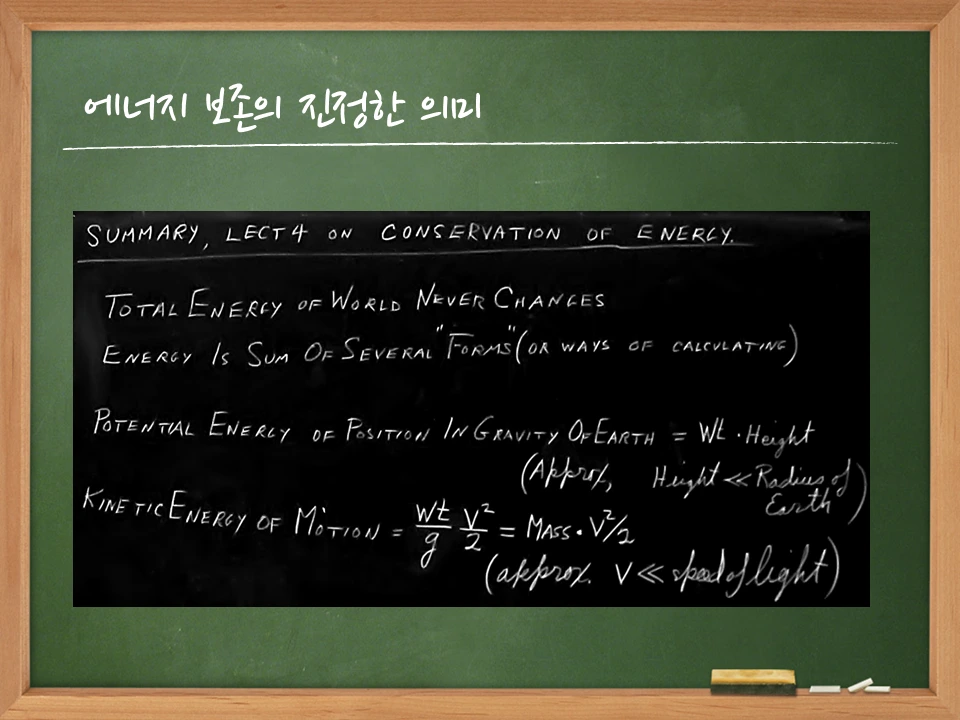 에너지 보존의 진정한 의미
SUMMARY, LECT 4 ON CONSERVATION OF ENERGY.
TOTAL ENERGY OF WORLD NEVER CHANGES
ENERGY IS SUM OF SEVERAL "FORMS" (OR WAYS OF CALCULATING)
POTENTIAL ENERGY OF POSITION IN GRAVITY OF EARTH = Wt · Height
(Approx, Height ≪ Radius of Earth)
KINETIC ENERGY OF MOTION = Wt/g V²/2 = MASS · V²/2
(approx. V ≪ speed of light)